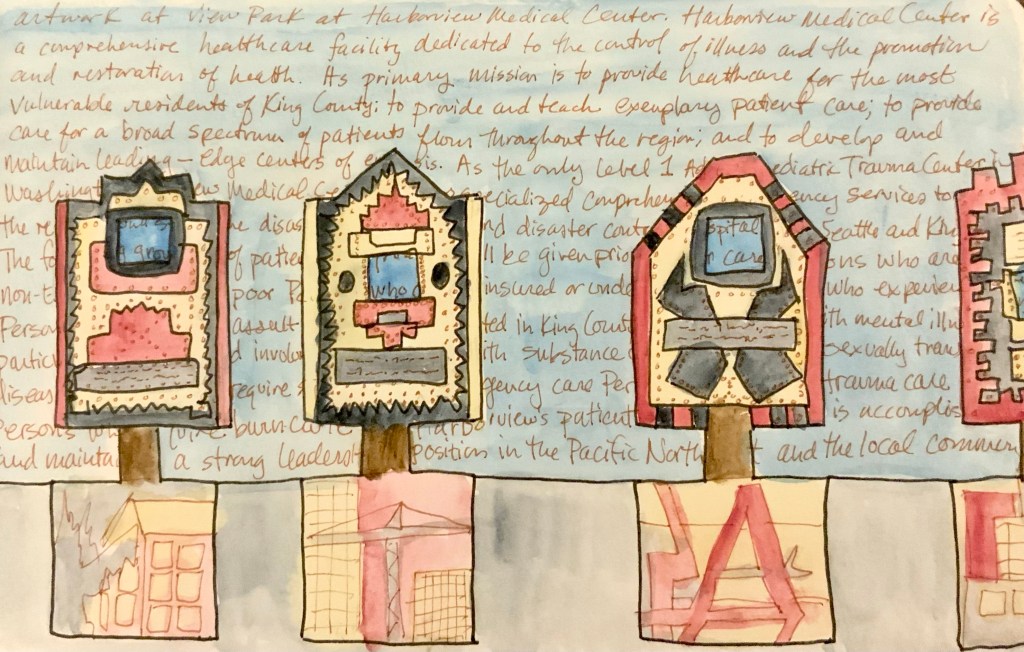 artwork at View Park at Harborview Medical Center. Harborview Medical Center is
a comprehensive healthcare facility dedicated to the control of illness and the promotion
and restoration of health. Its primary mission is to provide healthcare for the most
vulnerable residents of King County; to provide and teach exemplary patient care; to provide
care for a broad spectrum of patients from throughout the region; and to develop and
maintain leading-edge centers of As the only Level 1 Trauma Center
Washing Medical specialized comprehen services to
the disas nd disaster cont Seattle and King
The of patie ll be given prio ons who are
non-E poor insured or unde who experien
Person assault ted in King Count ith mental illn
partic d involv ith substance sexually trans
diseas require gency care Per trauma care
Persons burn care view's patient is accomplis
and maintai a strong leadersh position in the Pacific North and the local commun
grow
who
spital
care